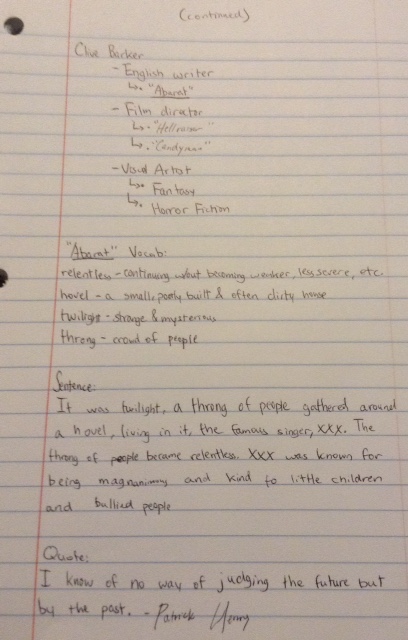 (continued)
Clive Barker
- English writer
↳. "Abarat"
- Film director
↳. "Hellraiser"
↳. "Candyman"
- Visual Artist
↳. Fantasy
↳. Horror Fiction
"Abarat" Vocab:
relentless - continuing w/out becoming weaker, less severe, etc.
hovel - a small, poorly built & often dirty house
twilight - strange & mysterious
throng - crowd of people
Sentence:
It was twilight, a throng of people gathered around
a hovel, living in it, the famous singer, XXX. The
throng of people became relentless. XXX was known for
being magnanimous and kind to little children
and bullied people
Quote:
I know of no way of judging the future but
by the past. - Patrick Henry